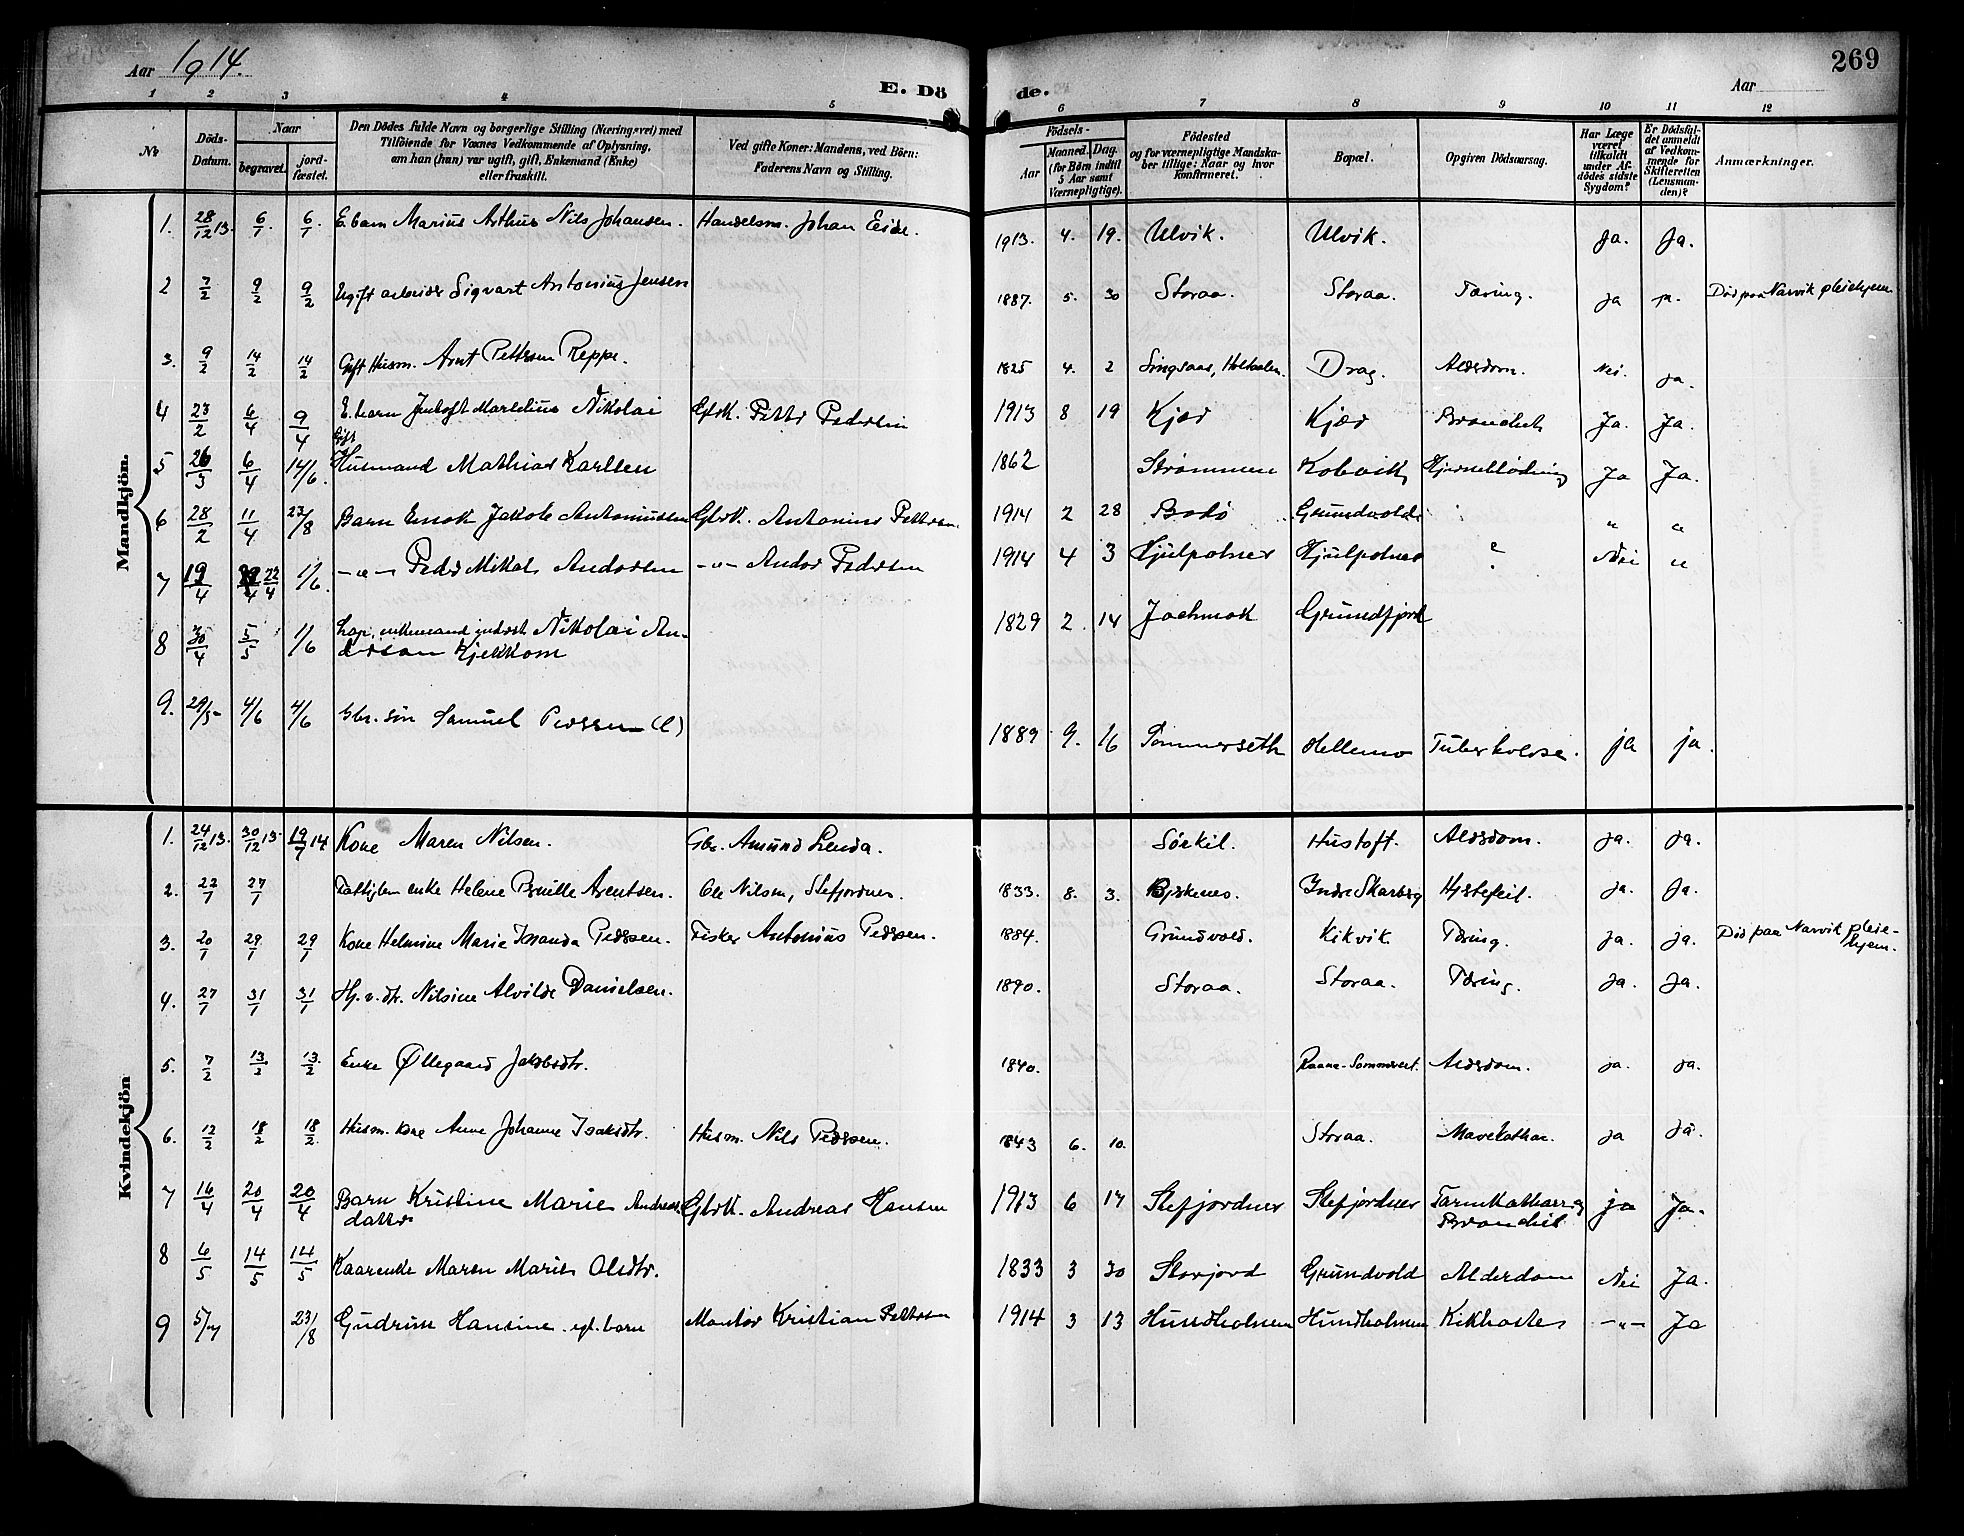 Aar 1914.
E. Dö
de.
Aar
269
1 2 3 4 5 6 7 8 9 10 11 12
No
Döds-Datum.
Naar
begravet.
jord-fæstet.
Den Dödes fulde Navn og borgerlige Stilling (Næringsvei) med
Tilföiende for Voxnes Vedkommende af Oplysning,
om han (hun) var ugift, gift, Enkemand (Enke)
eller fraskilt.
Ved gifte Koner: Mandens, ved Börn:
Faderens Navn og Stilling.
Födsels-
Aar
Maaned. Dag.
(for Börn indtil
5 Aar samt
Værnepligtige).
Födested
og for værnepligtige Mandska-
ber tillige: Naar og hvor
konfirmeret.
Bopæl.
Opgiven Dödsaarsag.
Har Læge
været
tilkaldt
under Af-
dödes sidste
Sygdom?
Er Dödsfal-
det anmeldt
af Vedkom-
mende for
Skifteretten
(Lensman-
den)?
Anmærkninger.
Mandkjön.
1. 28/12 13. 6/1. 6/1. E. barn Marius Arthur Nils Johansen. Handelsm. Johan Eide. 1913. 4. 19. Ulvik. Ulvik. Ja. Ja.
2 7/2 9/2 9/2 Ugift arbeider Sigvart Antonius Jensen 1887. 5. 30 Storaa. Storaa. Tæring. ja ja. Död paa Narvik pleiehjem
3. 9/2 14/2 14/2 Gift Husm. Arnt Pettersen Reppe. 1825 4. 2 Singsaas, Holtaalen. Drag. Alderdom. Nei. ja.
4 23/2 6/4 9/4 E. barn Marelius Nikolai Gbrk. Petter Pedersen 1913 8 19 Kjær Kjær Bronchit Ja. Ja.
5 26/3 6/4 14/6. Gift Husmand Mathias Karlsen 1862 Strømmen Kobvik Hjerneblødning Ja Ja.
6 28/2 11/4 23/8 Barn Enok Jakob Antoniussen Gbrk. Antonius Pettersen 1914 2 28 Bodø Grundvold " "
7 19/4 22/4 1/6. -"- Peder Mikal Andorsen -"- Andor Pedersen 1914 4 3 Hjulpolnes Hjulpolnes ? Nei "
8 30/4 5/5 1/6 Lap, enkemand, inderst Nikolai An-
dersen Kjekkom 1829 2. 14 Jockmok Grundfjord
9. 29/5 4/6 4/6 Gbr. søn Samuel Pedersen (l) 1889 9. 16 Sommerseth Hellemo Tuberkolose. ja ja.
Kvindekjön
1. 24/12 13. 30/12 13. 19/7 14 Kone Maren Nilsen. Gbr. Amund Lenda. Sörkil. Hustoft. Alderdom. ja. ja.
2. 22/1 27/1 Fattiglem enke Helene Pernille Arentsen. Ole Nilsen, Stefjordnes. 1833. 8. 3. Bjerkenes. Indre Skarberg Hjertefeil. ja. Ja.
3. 20/1 29/1 29/1 Kone Helmine Marie Pedersen. Fisker Antonius Pedersen. 1884. Grundvold. Kikvik. Tæring. ja. ja. Död paa Narvik pleie-
hjem.
4. 27/1 31/1 31/1 Hj. v. dtr. Nilsine Alvilde Danielsen. 1890. Storaa. Storaa. Tæring. ja. Ja.
5. 7/2 13/2 13/2 Enke Øllegaard Jakobsdtr. 1840. Alderdom. ja. ja.
6. 12/2 18/2 18/2. Husm. kone Anne Johanne Isaksdtr. Husm. Nils Pedersen. 1843 6. 10. Storaa. Mavekathar. ja ja.
7 16/4 20/4 20/4 Barn Kristine Marie Andreas-
datter Gbrk. Andreas Hansen 1913 6 17 Stefjordnes Stefjordnes Tarmkathar og
Bronchit ja Ja.
8 6/5 14/5 14/5 Kaarenke Maren Marie Olsdtr. 1833 3 30 Storjord Grundvold Alderdom Nei Ja.
9 5/7 23/8 Gudrun Hansine egt. barn Montør Kristian Pettersen 1914 3 13 Hundholmen Hundholmen Kikhoste -"- Ja